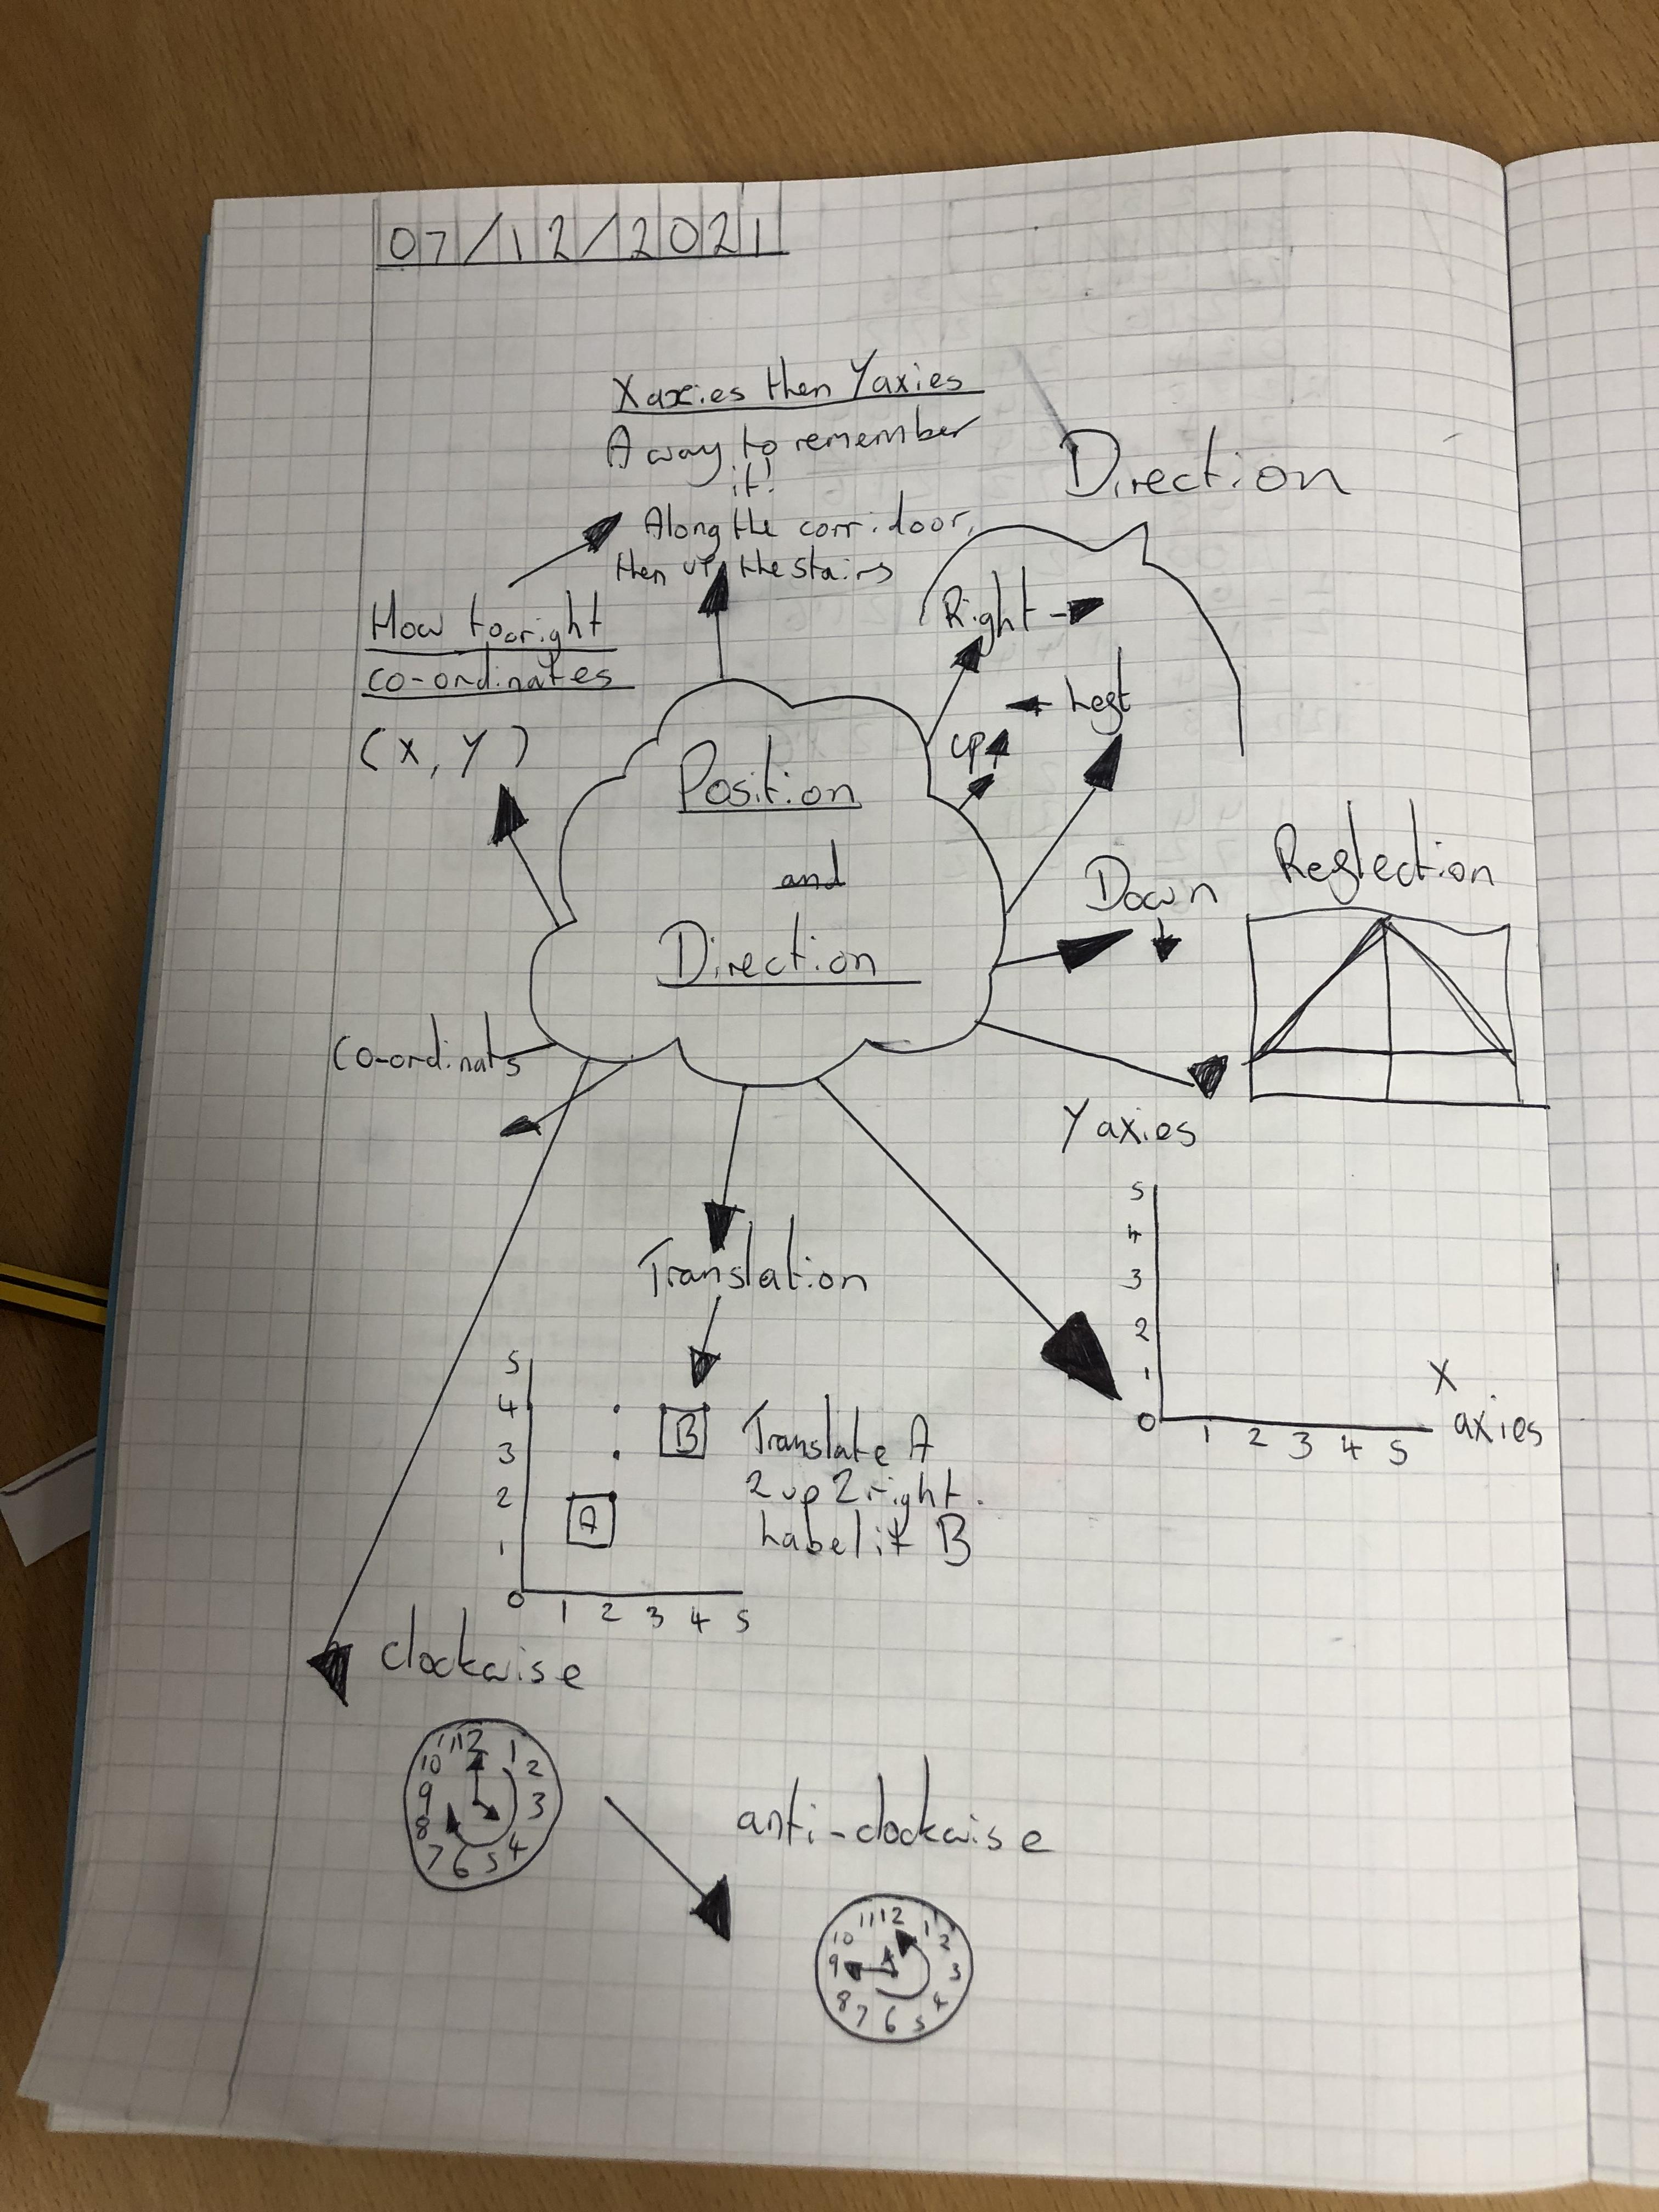 07/12/2021
X axies then Y axies
A way to remember
it!
Along the corridoor,
then up the stairs
Direction
How to wright
co-ordinates
(X, Y)
Right
Left
up
Position
and
Direction
Down
Reflection
Co-ordinats
Y axies
5
4
3
2
1
0
1 2 3 4 5
X
axies
Translation
5
4
3
2
1
0
1 2 3 4 5
A
B
Translate A
2 up 2 right.
Label it B
clockwise
12 1 2 3 4 5 6 7 8 9 10 11
anti-clockwise
12 1 2 3 4 5 6 7 8 9 10 11